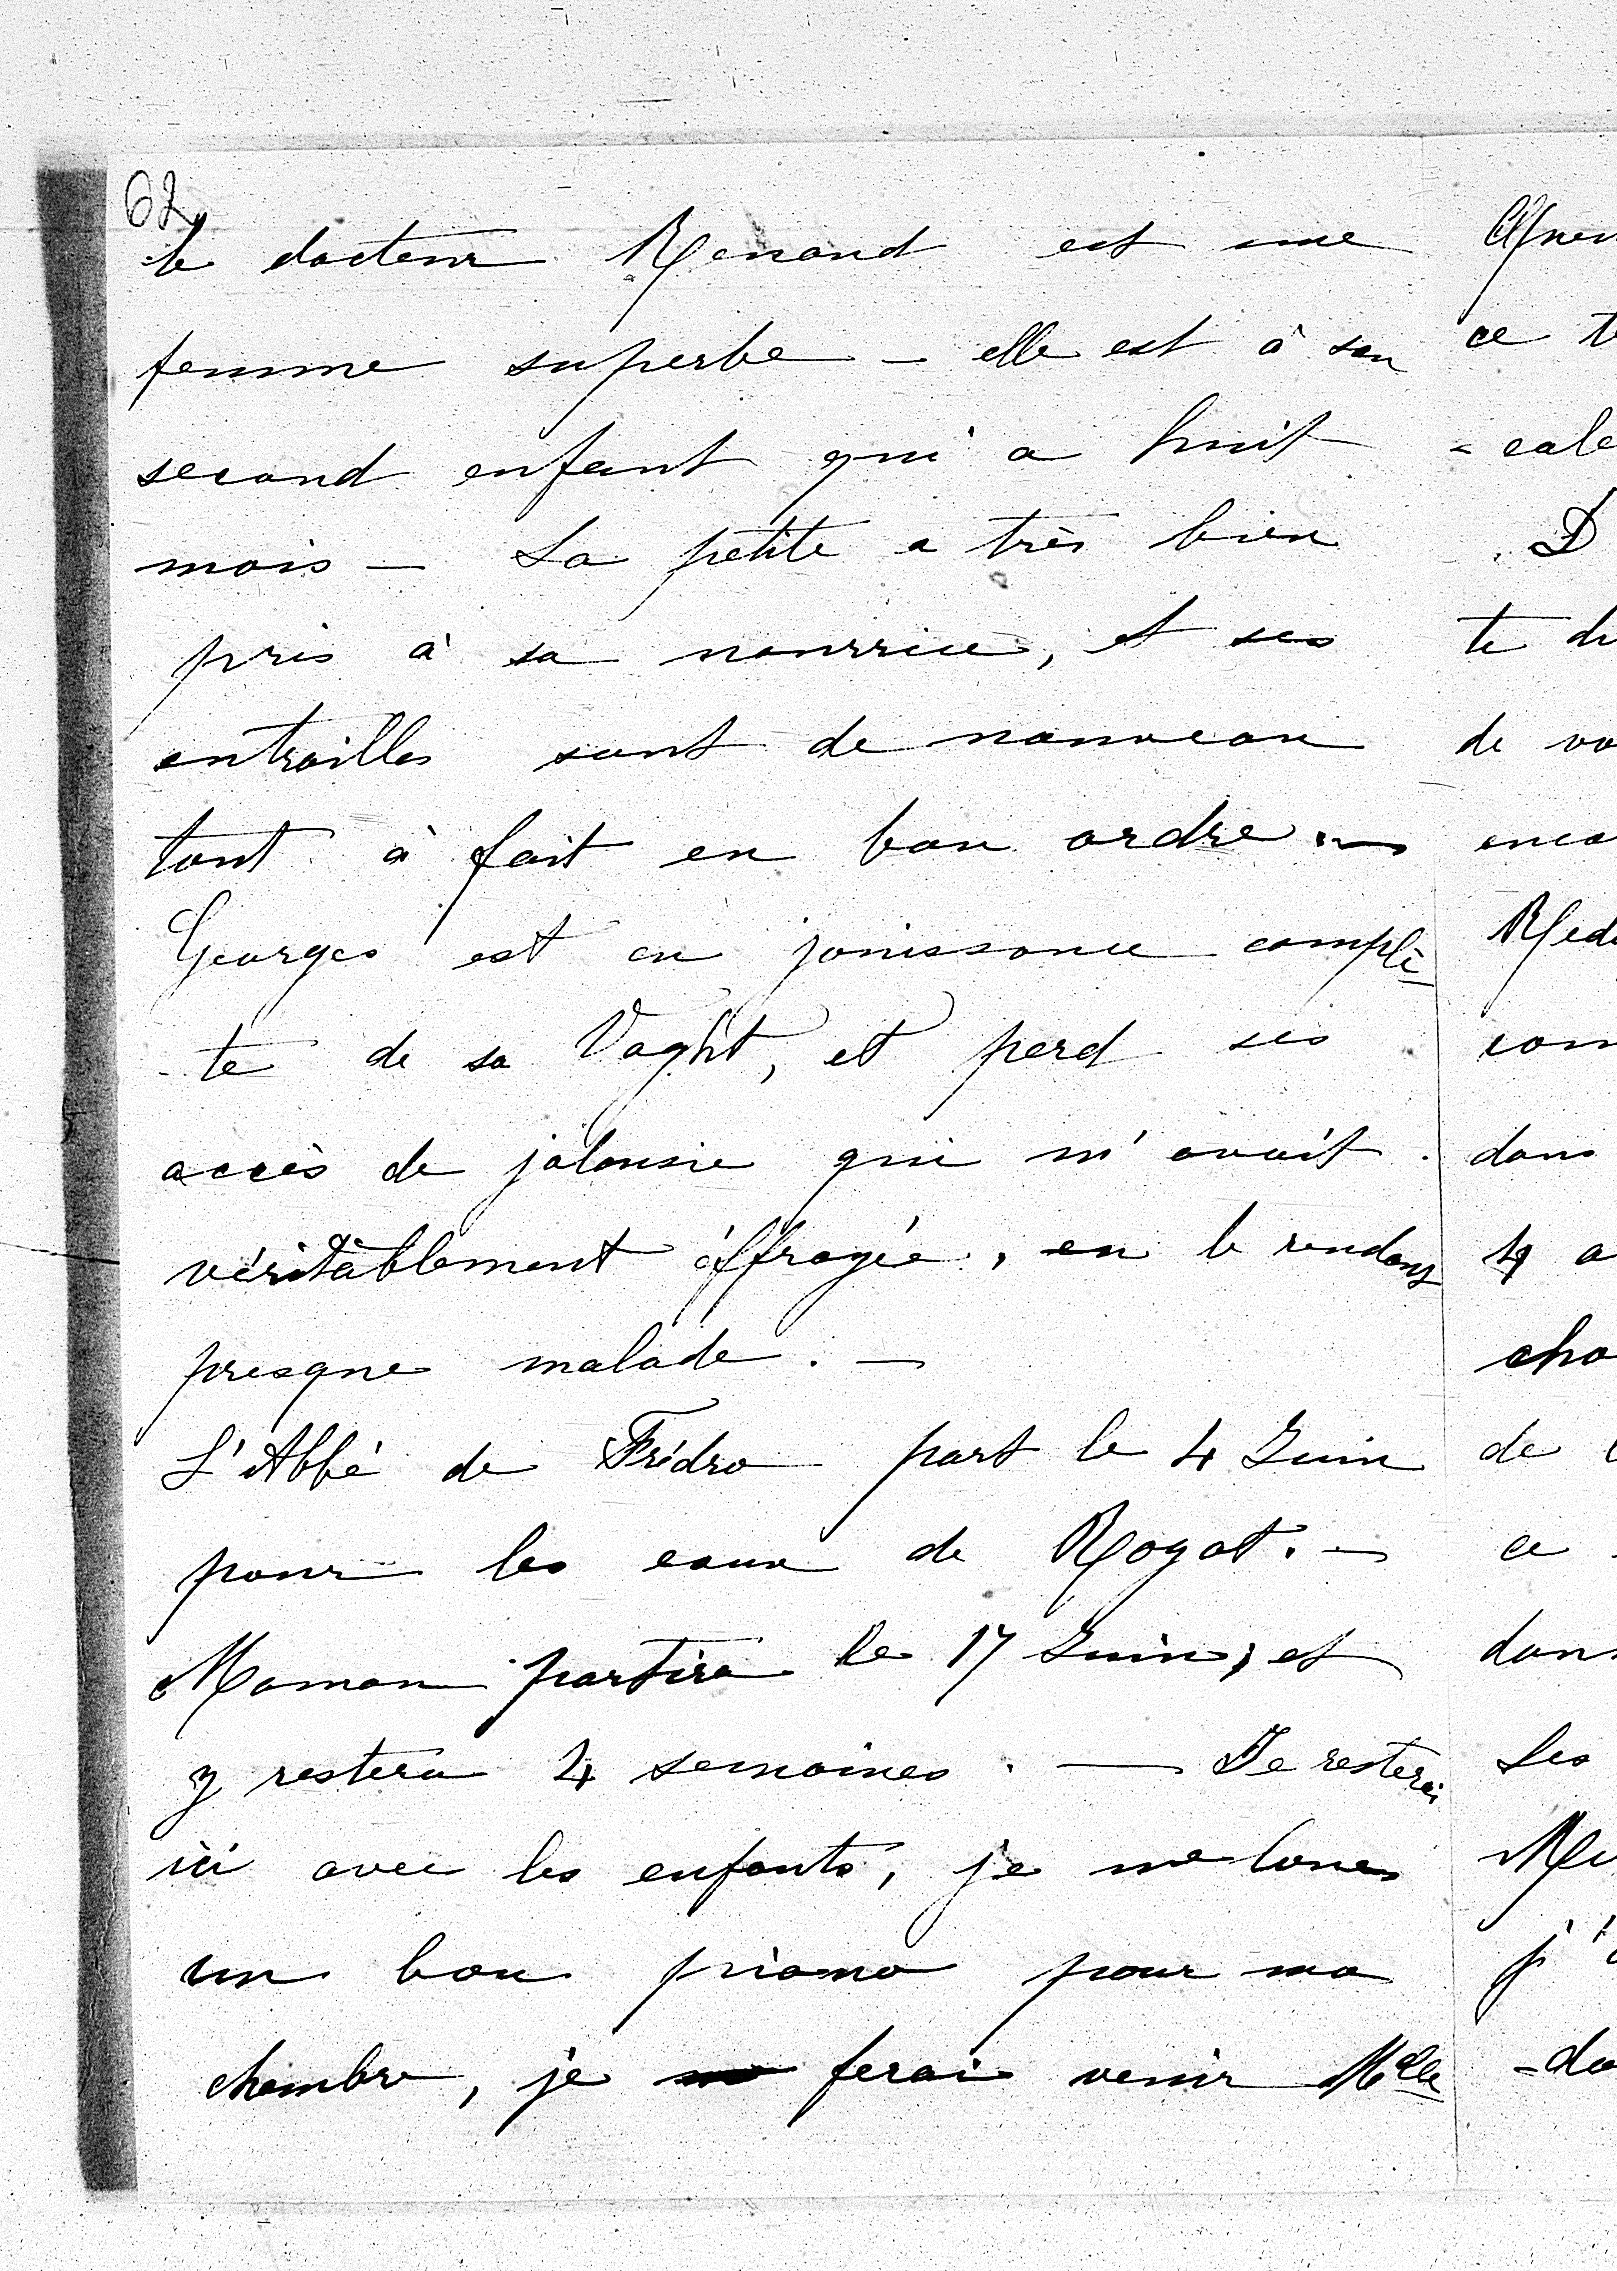 62
le docteur Renard est une
femme superbe – elle est à son
second enfant qui a huit
mois – La petite a très bien
pris à sa nourrice, et ses
entrailles sont de nouveau
tout à fait en bon ordre. –
Georges est en jouissance complè
-te de sa Voght, et perd ses
accès de jalousie qui m'avait
véritablement éffrayée, en le rendant
presque malade. –
L'Abbé de Frédro part le 4 Juin
pour les eaux de Royat. –
Maman partira le 17 Juin, et
y restera 4 semaines. – Je resterai
ici avec les enfants, je me loues
un bon piano pour ma
chambre, je ferai venir Mlle
ce
- cale
D
te
de
enco
dans
4 a
cho
de
ce
Les
-do